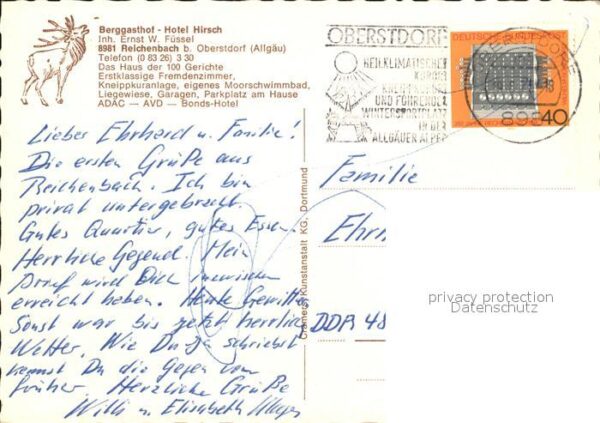 Berggasthof - Hotel Hirsch
Inh. Ernst W. Füssel
8981 Reichenbach b. Oberstdorf (Allgäu)
Telefon (0 83 26) 3 30
Das Haus der 100 Gerichte
Erstklassige Fremdenzimmer,
Kneippkuranlage, eigenes Moorschwimmbad,
Liegewiese, Garagen, Parkplatz am Hause
ADAC — AVD — Bonds-Hotel
Lieber Ehrhard u. Familie!
Die ersten Grüße aus
Reichenbach. Ich bin
privat untergebracht.
Gutes Quartier, gutes Essen.
Herrliche Gegend. Mein
Brief wird Dich inzwischen
erreicht haben. Heute Gewitter
Sonst war bis jetzt herrlich
Wetter. Wie Du ja schriebst
kennst Du die Gegend von
früher. Herzliche Grüße
Willi u. Elisabeth
Cramers Kunstanstalt KG, Dortmund
OBERSTDORF
HEILKLIMATISCHER
KURORT
KNEIPPKURORT
UND FÜHRENDER
WINTERSPORTPLATZ
IN DEN
ALLGÄUER ALPEN
DEUTSCHE BUNDESPOST
40
OBERSTDORF
898
Familie
Ehr
DDR 48
privacy protection
Datenschutz